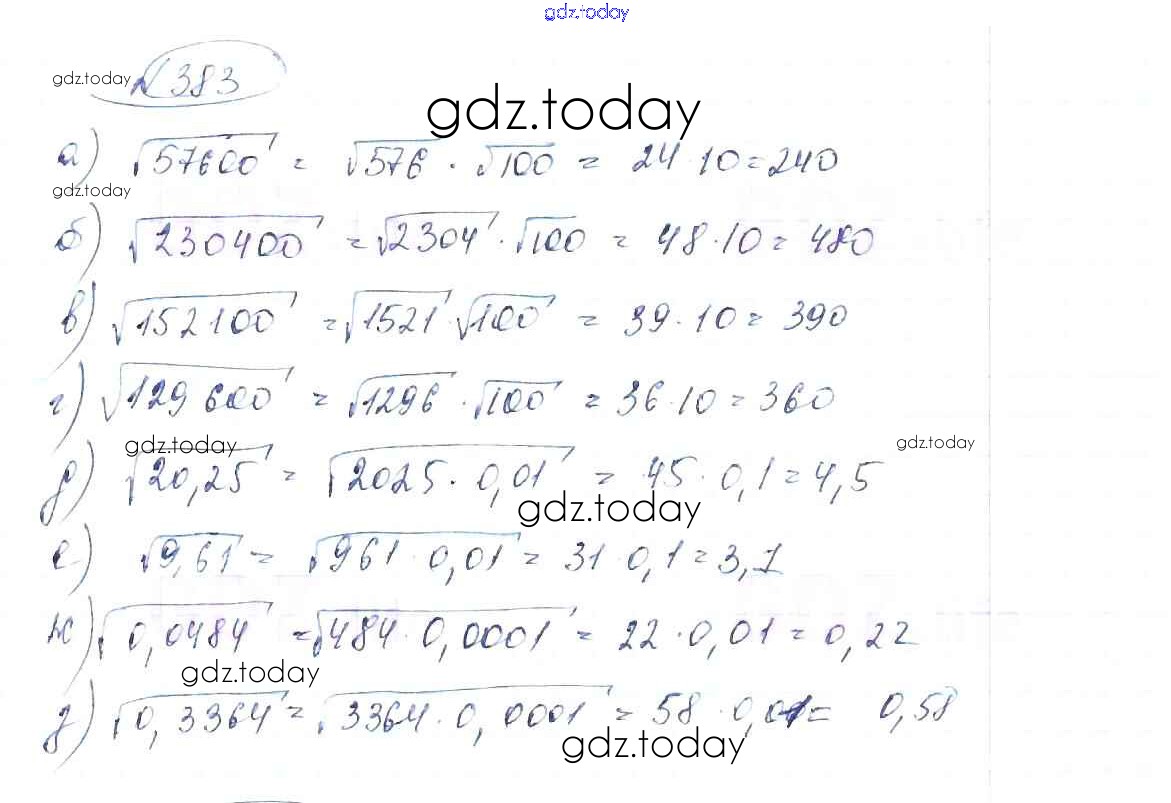 gdz.today
gdz.today
№ 383
gdz.today
а) √57600 = √576 · √100 = 24 · 10 = 240
gdz.today
б) √230400 = √2304 · √100 = 48 · 10 = 480
в) √152100 = √1521 · √100 = 39 · 10 = 390
г) √129600 = √1296 · √100 = 36 · 10 = 360
gdz.today
gdz.today
д) √20,25 = √2025 · 0,01 = 45 · 0,1 = 4,5
gdz.today
е) √9,61 = √961 · 0,01 = 31 · 0,1 = 3,1
ж) √0,0484 = √484 · 0,0001 = 22 · 0,01 = 0,22
gdz.today
з) √0,3364 = √3364 · 0,0001 = 58 · 0,01 = 0,58
gdz.today